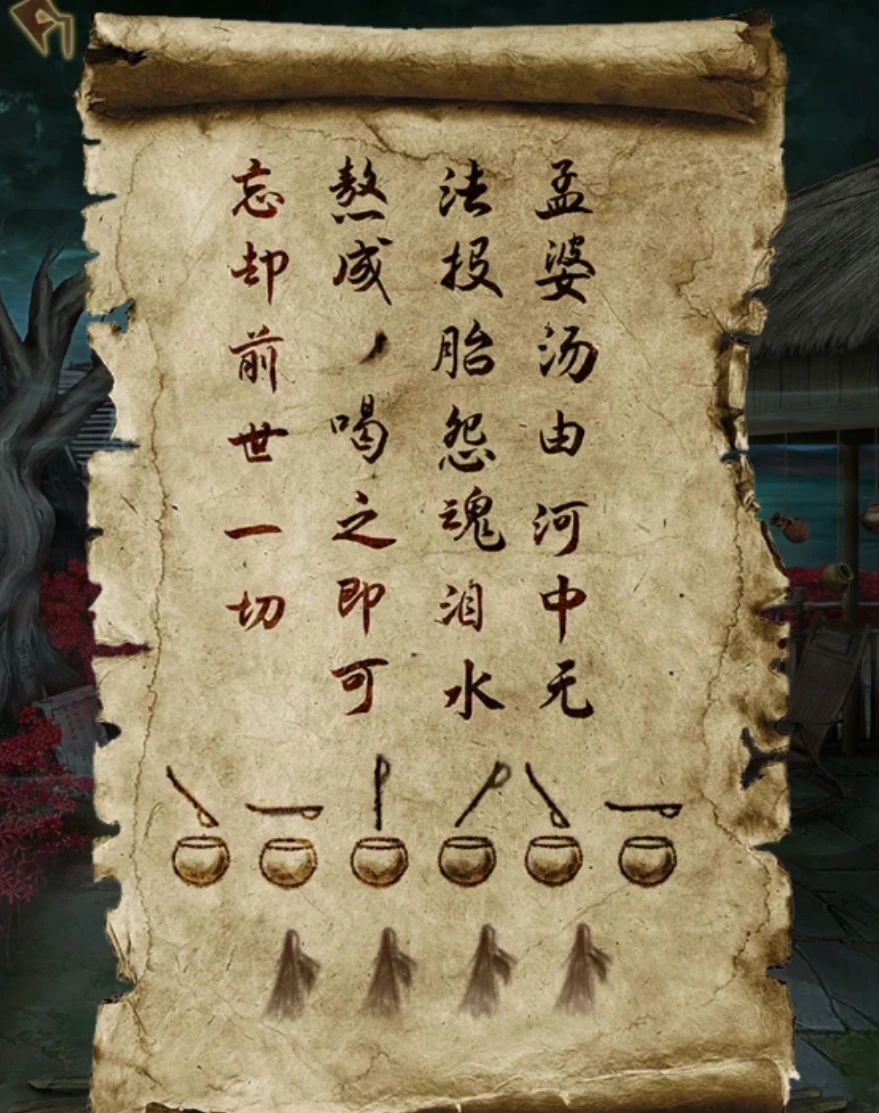 孟婆汤由河中无
法投胎怨魂泪水
熬成，喝之即可
忘却前世一切